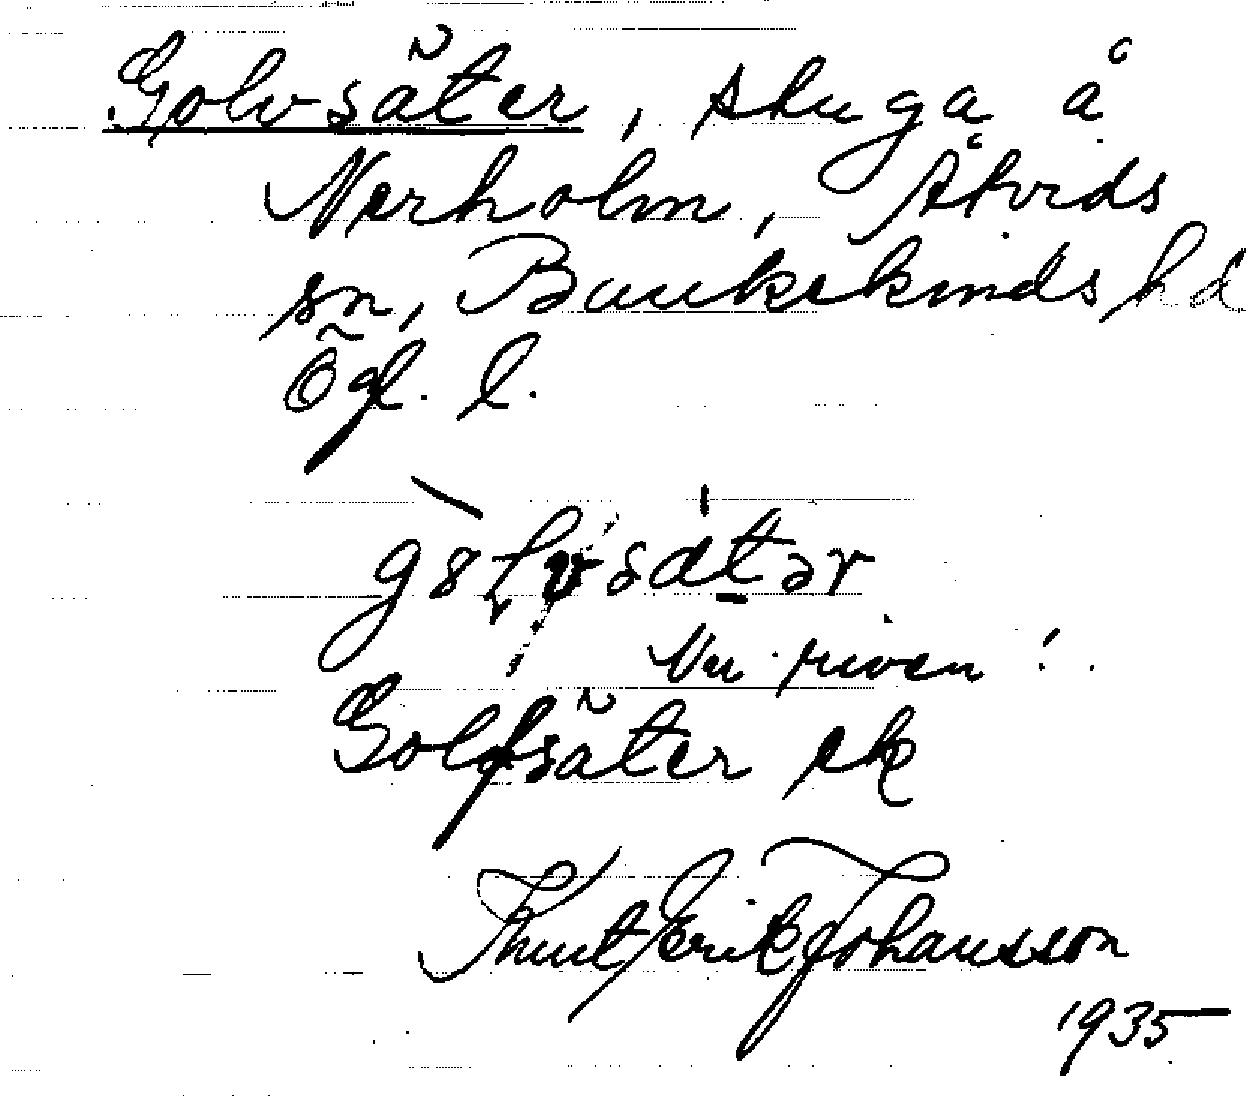 Golvsäter, stuga å
Nerholm, Åtvids
sn, Bankekinds hd
Ögl. l.
Nu riven!
Golfsäter ek
Knut Erik Johansson
1935